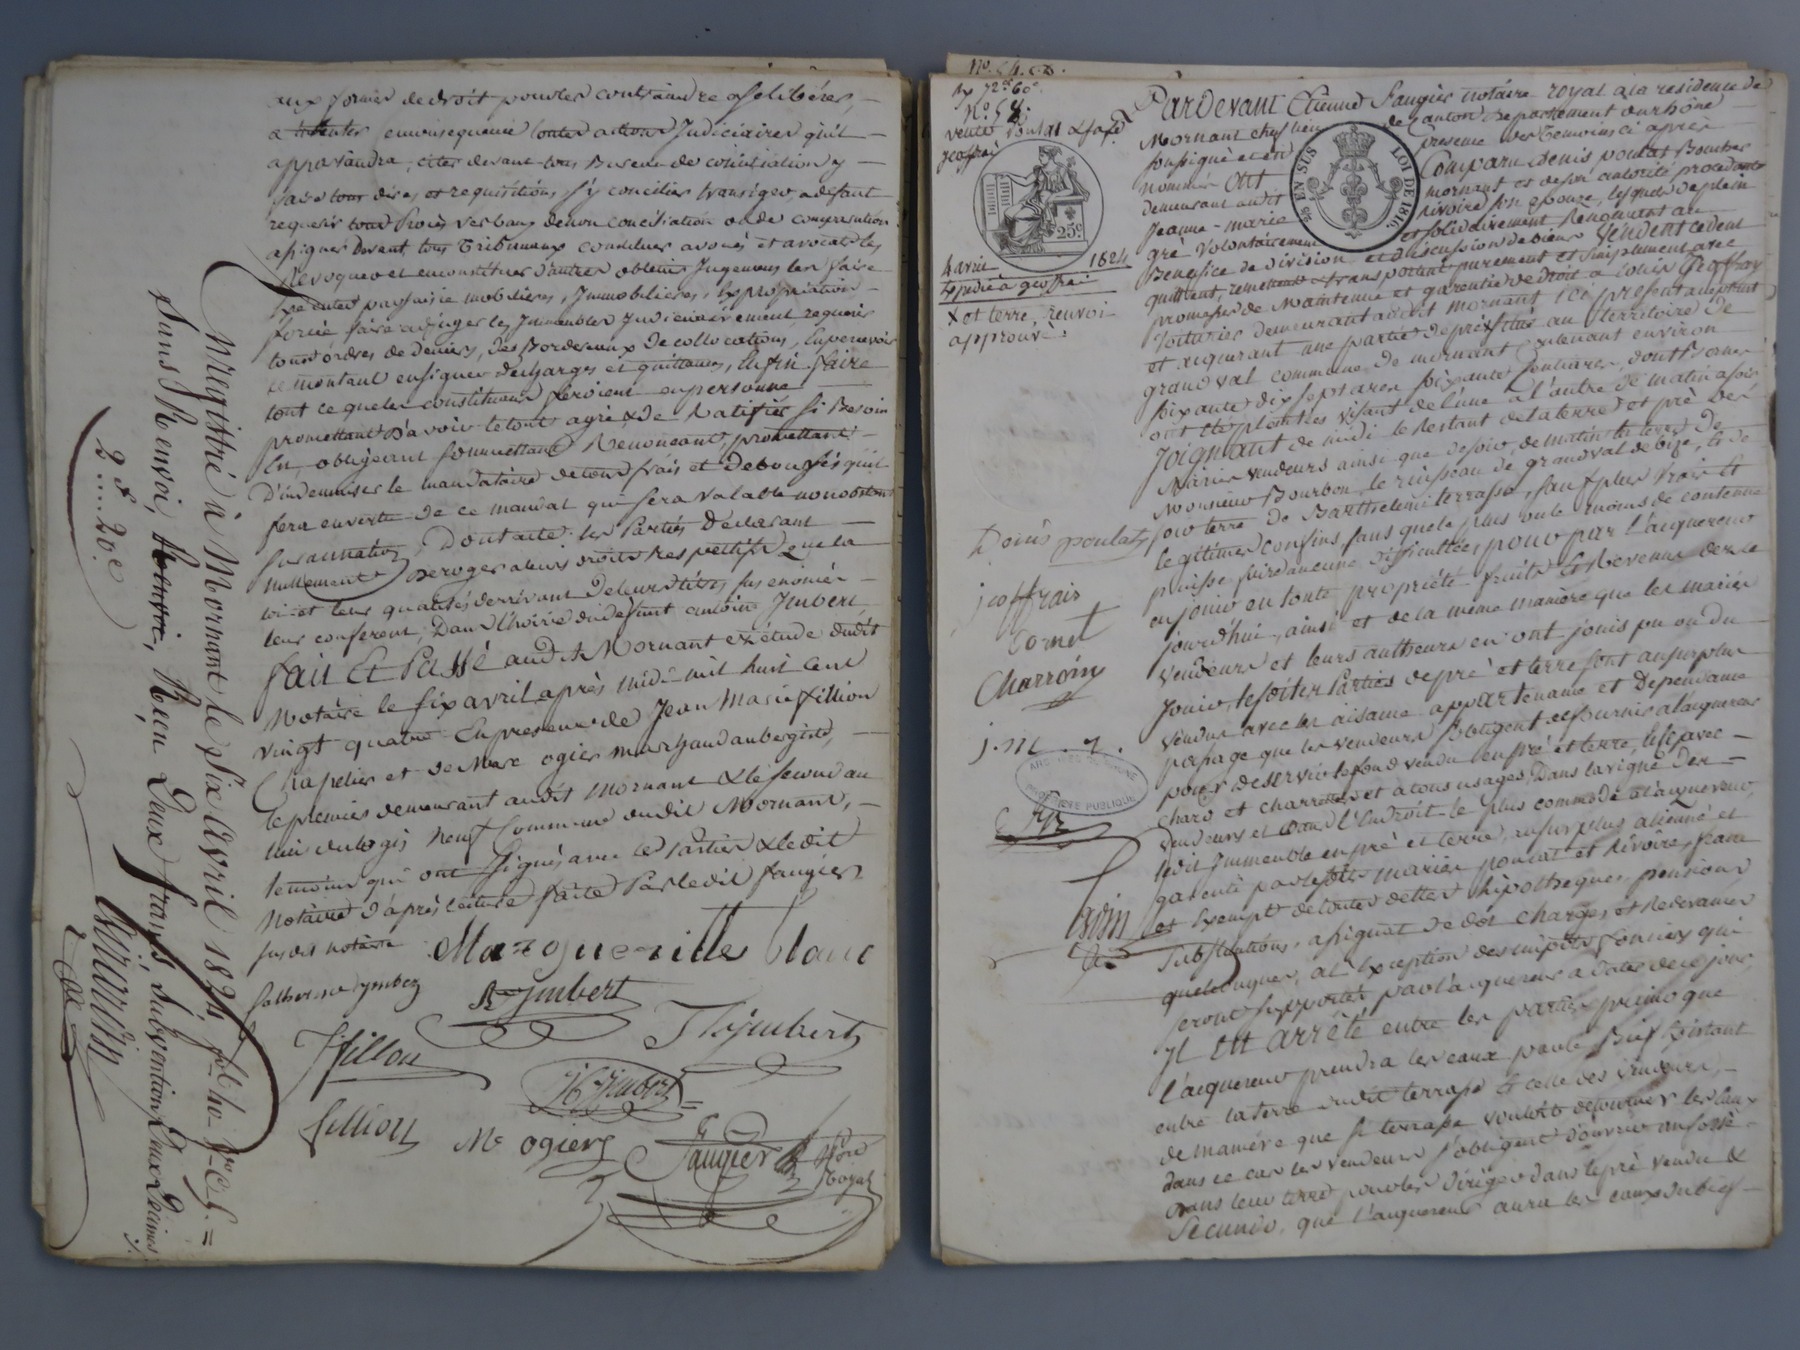 aux formes de droit pour les contraindre a se libérer,
a intenter en conséquence toutes actions Judiciaires qu'il
apprendra, citer devant tous Bureaux de conciliation y
faire tous dires et requisitions, s'y concilier transiger, a défaut
requerir tous Procès verbaux de non conciliation ou de comparution
assigner devant tous Tribunaux constituer avoués et avocats les
Révoquer et en constituer d'autres obtenir Jugemens les faire
Exécuter par saisie mobilières, Immobilieres, Expropriation
forcée faire adjuger les Immeubles Judiciairement requerir
tous ordres de deniers, des Bordereaux de collocations, En percevoir
le montant en signer décharges et quittances, Enfin faire
tout ce que les constituans feroient en personne
promettant d'avoir le tout agrée & de Ratifier si Besoin
Est, obligeant soumettant Renonçant, promettant
D'indemniser le mandataire de tous frais et Déboursés qu'il
fera en vertu de ce mandat qui sera valable nonobstant
surannation, Dont acte les Parties Déclarant
nullement Deroger a leurs droits respectifs que la
loi et leur qualités derrivant de leurs titres sus enoncés
leur conferent, Dans l'hoirie du défunt antoine Imbert
fait Et Passé audit Mornant en étude dudit
Notaire le six avril après midi mil huit cent
vingt quatre En presence de Jean Marie fillion
Chapelier et de Marc ogier marchand aubergiste,
le premier demeurant audit Mornant & le second au
lieu du logis neuf Commune dudit Mornant,
temoins qui ont Signés avec les Parties & ledit
Notaire d'après lecture faite Par ledit faugier
susdit notaire
Margueritte blanc
Catherine ymbert
Bte ymbert
fillon
Imbert
JB Imbert
fillion
Mc ogier
faugier
Nore
Royal
Enregistré à Mornant le Six Avril 1824 fol. ho
sans Renvoi, Reçu Deux francs, subvention Deux Decimes
2 f. 20 c.
No. 58.
vente Poulat & sa fe
geoffrai
25c
EN SUS
LOI DE 1816
4 avril 1824
Expedié à geoffrai
X et terre, renvoi
approuvé
Pardevant Etienne Faugier notaire royal a la residence de
Mornant chef lieu de Canton Departement du rhône
soussigné et en presence des Temoins ci après
nommés ont Comparu Denis poulat
demeurant audit mornant et de son autorité procedante
Jeanne-marie Rivoire son epouse, lesquels de plein
gré Volontairement et solidairement Renonçant au
Benefice de Division et discussion de biens Vendent cedent
quittent, remettent & transportent purement et simplement avec
promesse de Maintenue et garentie de droit a Louis Geoffray
Voiturier demeurant audit Mornant ici présent acceptant
et requerant une partie de pré située au territoire de
grand val commune de mornant contenant environ
soixante dix sept ares soixante centiares, dont bornes
ont été plantées visant de l'une a l'autre de matin a soir
Joignant de midi le Restant de la terre et pré des
Mariés vendeurs ainsi que de soir, de matin les terres de
Monsieur Bourbon le ruisseau de grandval de bize, & de
soir terre de Barthelemi terrasse, sauf plus vrais et
legitimes confins, sans que le plus ou le moins de contenue
puisse faire aucune difficultée, pour par l'acquereur
en jouir en toute propriété fruits et Revenus des ce
jourd'hui, ainsi et de la même manière que les mariés
Vendeurs et leurs autheurs en ont jouis pu ou du
Jouir, lesdites Parties de pré et terre sont au surplus
Vendus avec les aisance appartenance et Dependance
passage que les vendeurs s'obligent de fournir a l'acquereur
pour desservir le fond vendu en pré et terre, tes avec
chars et charrettes et a tous usages, Dans la vigne des
vendeurs et Dans l'Endroit le plus commode a l'acquereur,
ledit Immeuble en pré et terre, au surplus aliené et
garenti par lesdits mariés poncat et Rivoire, franc
et Exempt de toutes dettes hipotheques pensions
Substitutions, assignat de dot charges et Redevances
quelconques, a l'Exception des impots fonciers qui
seront supportés par l'acquereur a dater de ce jour
Il Est Arrêté entre les parties primo que
l'acquereur prendra les eaux par le Bief Existant
entre la terre dudit terrasse & celle des Vendeurs,
de manière que si terrasse vouloit détourner les eaux
dans ce cas les vendeurs s'obligent d'ouvrir un fossé
dans leur terre pour les Diriger dans le pré vendu &
Secundo, que l'acquereur aura les eaux du bief
Denis poulat
joffrais
Cornet
Charroin
J. M. R.
ARCHIVES DU RHONE
PROPRIETE PUBLIQUE